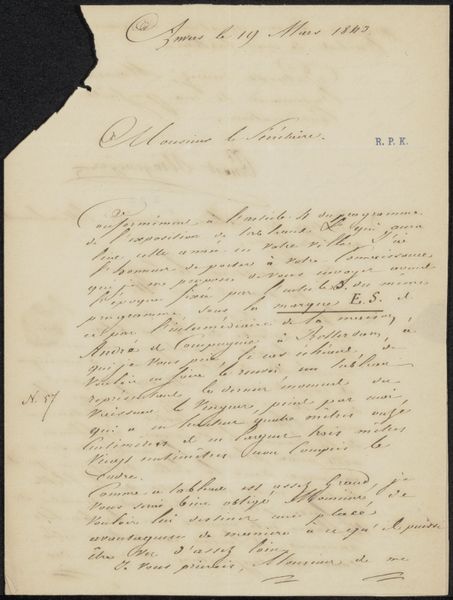 Anvers le 19 Mars 1840.
Monsieur le Secrétaire.
R. P. K.
Conformément à l'article 4 du programme
de l'exposition de tableaux &c qui aura
lieu cette année en votre ville, j'ai
l'honneur de porter à votre connaissance
que je me propose de vous envoyer avant
l'époque fixée par l'article 3. du même
programme, sous la marque E. S. et
ce par l'intermédiaire de la maison,
André et Compagnie, à Rotterdam, à
qui je vous prie, le cas échéant, de
vouloir en faire la remise un tableau
représentant le dernier moment du
N. 57
Vaisseau le Vengeur, peint par moi,
qui a en hauteur quatre mètres onze
centimètres et en largeur trois mètres
vingt centimètres non compris le
Cadre.
Comme ce tableau est assez grand, je
vous serai bien obligé, Monsieur, de
vouloir lui destiner une place
avantageuse de manière à ce qu'il puisse
être vu d'assez loin.
Je vous prierais, Monsieur, de me